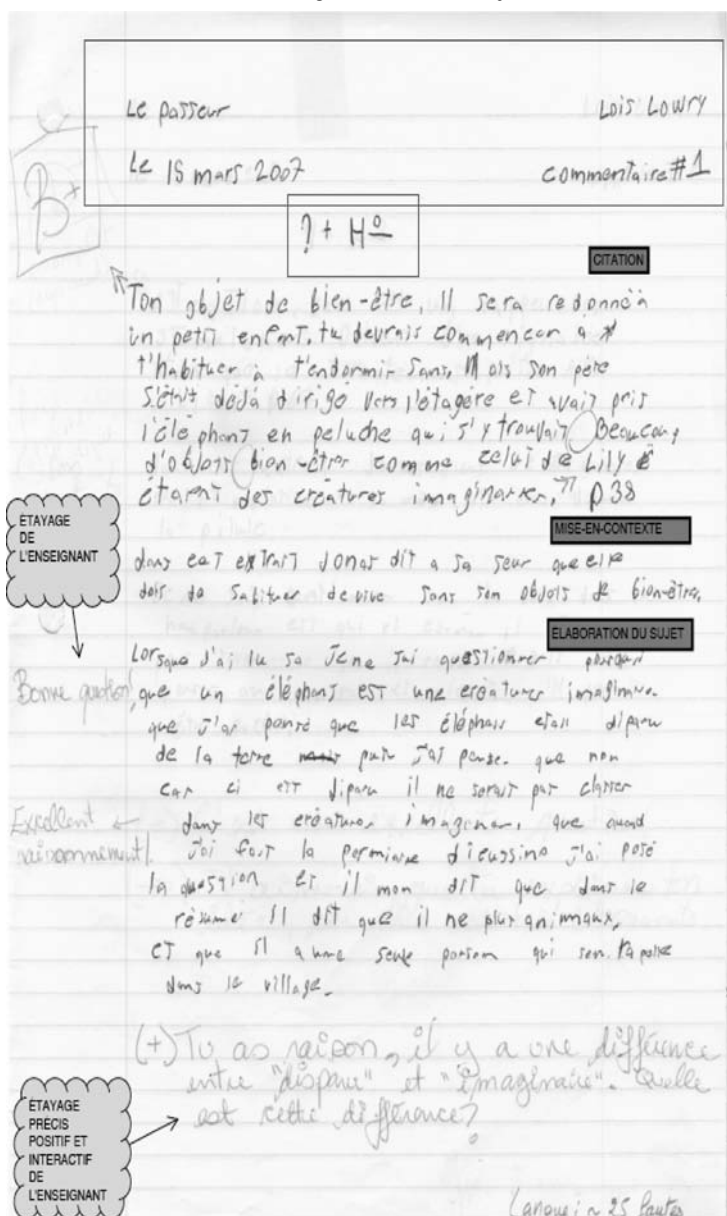 Le passeur Lois Lowry
Le 15 mars 2007 commentaire #1
B+
? + Hº
CITATION
Ton objet de bien-être, il sera redonné à
un petit enfant, tu devrais commencer à
t'habituer à t'endormir sans, Mais son père
s'était déjà dirigé vers l'étagère et avait pris
l'éléphant en peluche qui s'y trouvait Beaucoup
d'objets bien-êtres comme celui de Lily
étaient des créatures imaginaires, " p 38
ÉTAYAGE
DE
L'ENSEIGNANT
MISE-EN-CONTEXTE
dans cet extrait Jonas dit a sa seur que elle
dois de sabituer de vive sans son objets de bien-êtres.
ELABORATION DU SUJET
Lorsque J'ai lu sa Je me sui questionner pourquoi
Bonne question! que un éléphant est une créatures imaginaire.
que J'ai pensé que les éléphais etais diparu
de la terre mais puis J'ai pensé. que non
car ci est diparu il ne serait pas classer
Excellent dans les créatures imaginer, que quand
raisonnement! J'ai fait la permiaire dicussino J'ai posé
la question et il mon dit que dans le
résumé il dit que il ne plus animaux,
et que il a une seule person qui sen rapelle
dans le village.
(+) Tu as raison, il y a une différence
entre "disparu" et "imaginaire". Quelle
est cette différence?
ÉTAYAGE
PRÉCIS
POSITIF ET
INTERACTIF
DE
L'ENSEIGNANT
Langue : ~ 25 fautes